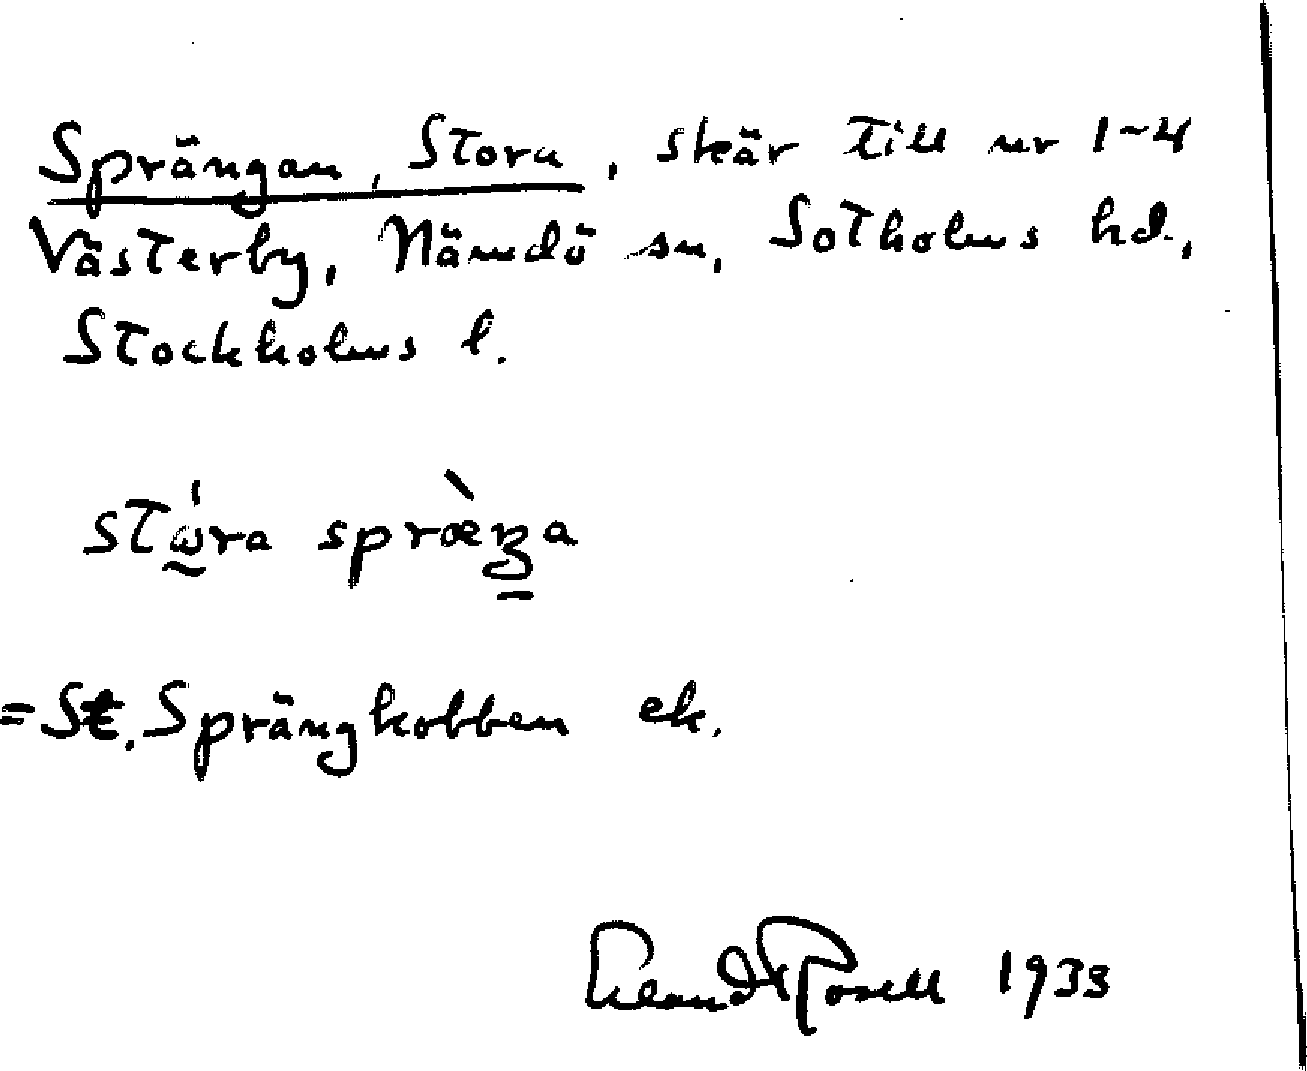 Sprängan, Stora, skär till nr 1-4
Västerby, Nämdö sn, Sotholms hd.,
Stockholms l.
stώ̰ra spræ̀ᶇa
= St. Sprängkobben ek.
Erland Rosell 1933